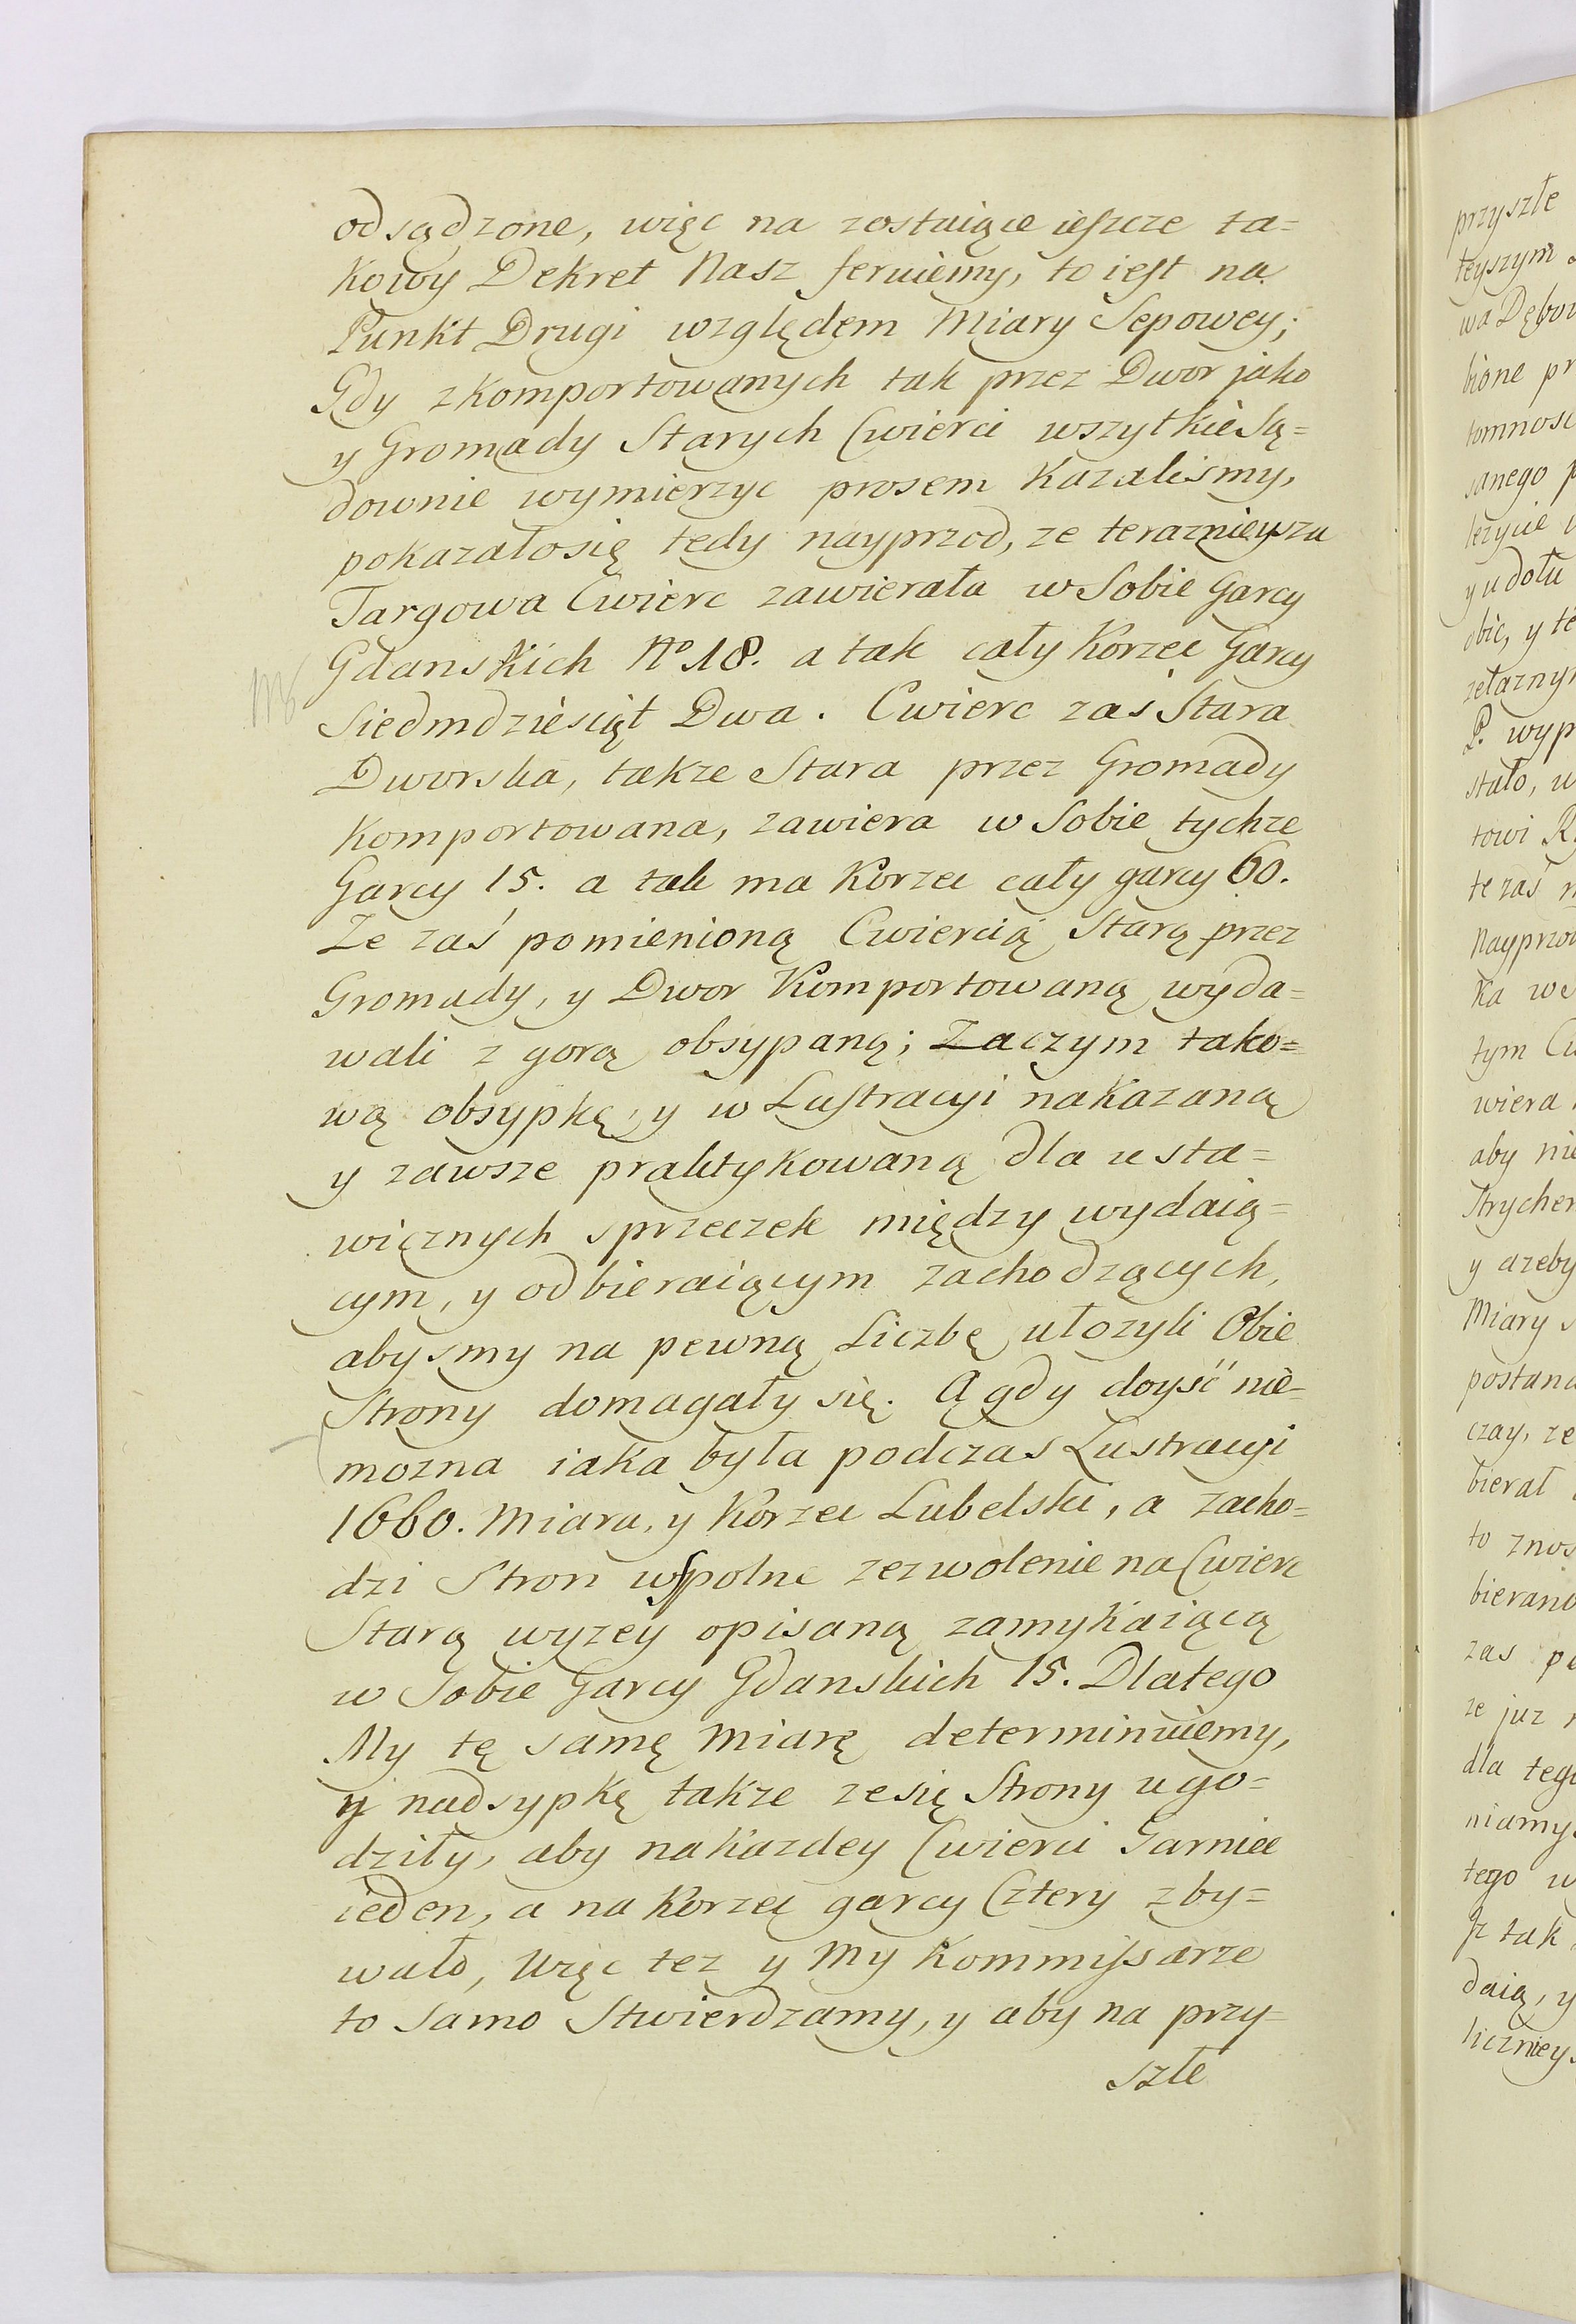 odsądzone, więc na zostaiące ieszcze ta=
kowy Dekret Nasz feruiemy, to iest na
Punkt Drugi względem Miary Sepowey;
Gdy zkomportowanych tak przez Dwor jako
y Gromady Starych Cwierci wszytkie Są=
downie wymierzyc prosem kazalismy,
pokazałosię tedy nayprzod, ze teraznieysza
Targowa Cwierc zawierała w Sobie Garcy
Gdanskich No 18. a tak cały Korzec Garcy
Siedmdziesiąt Dwa. Cwierc zaś Stara
Dworska, takze Stara przez Gromady
Komportowana, zawiera w Sobie tychze
Garcy 15. a tak ma Korzec cały garcy 60.
Ze zaś pomienioną Cwiercią Starą przez
Gromady, y Dwor Komportowaną wyda=
wali z gorą obsypaną; Zaczym tako=
wą obsypkę, y w Lustracyi nakazaną
y zawsze praktykowaną dla usta=
wicznych sprzeczek między wydaią=
cym, y odbieraiącym zachodzących,
abysmy na pewną Liczbę ułozyli Obie
Strony domagały się. A gdy doyść nie=
mozna iaka była podczas Lustracyi
1660. Miara, y Korzec Lubelski, a zacho=
dzi Stron wspolne zezwolenie na Cwierc
Starą wyzey opisaną zamykaiącą
w Sobie Garcy Gdanskich 15. Dlatego
My tę samę Miarę determinuiemy,
y nadsypkę takze ze się Strony ugo=
dziły, aby na kazdey Cwierci Garniec
ieden, a na Korzec garcy Cztery zby=
wało, Więc tez y My Kommissarze
to Samo Stwierdzamy, y aby na przy=
szłe
przyszłe
teyszym
wa Dębow
bione pr
tomnosc
sanego p
lezycie
y u dołu
obic, y te
zelaznym
P. wyp
stało, w
towi R
te zaś n
Nayprzod
ka we
tym Cw
wiera
aby nie
Strychem
y azeby
Miary s
postana
czay, ze
bierał
to znos
bierano
zas pe
ze juz
dla tego
niamy
tego w
tak
daią, y
licznieys